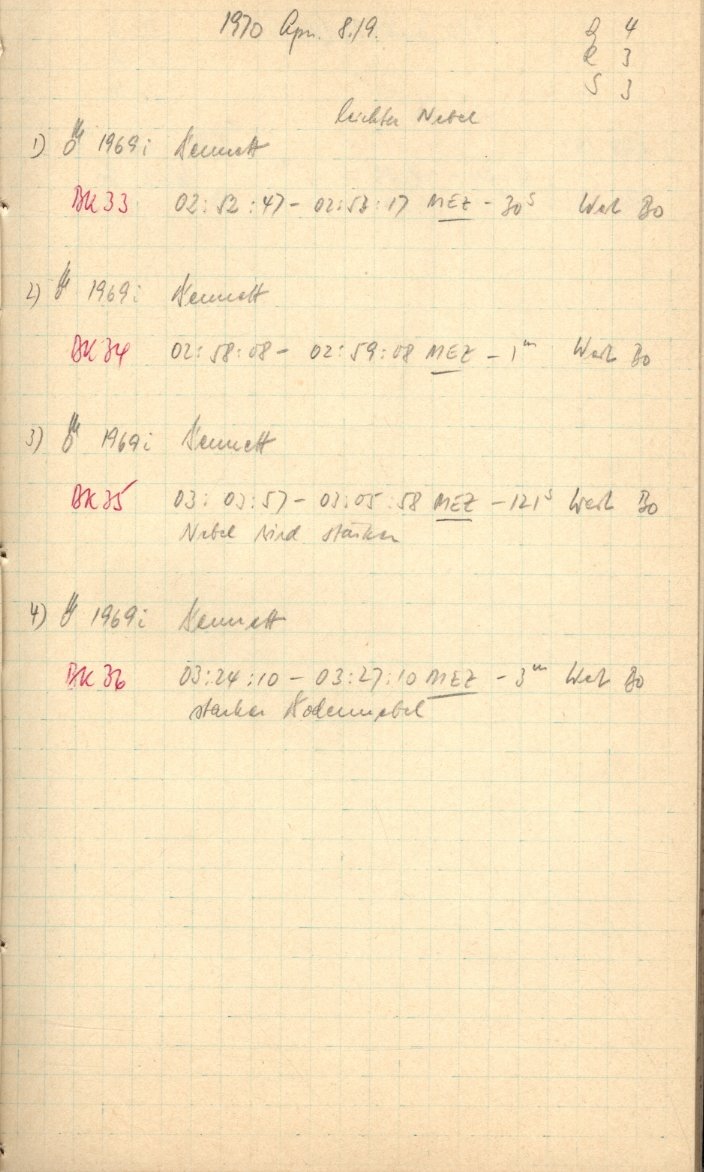 1970 Apr. 8./9.
4
R 3
S 3
leichter Nebel
1) ☄ 1969i Bennett
BK33 02:52:47 – 02:53:17 MEZ – 30s Bo
2) ☄ 1969i Bennett
BK34 02:58:08 – 02:59:08 MEZ – 1m Bo
3) ☄ 1969i Bennett
BK35 03:03:57 – 03:05:58 MEZ – 121s Bo
Nebel wird stärker
4) ☄ 1969i Bennett
BK36 03:24:10 – 03:27:10 MEZ – 3m Bo
starker Bodennebel